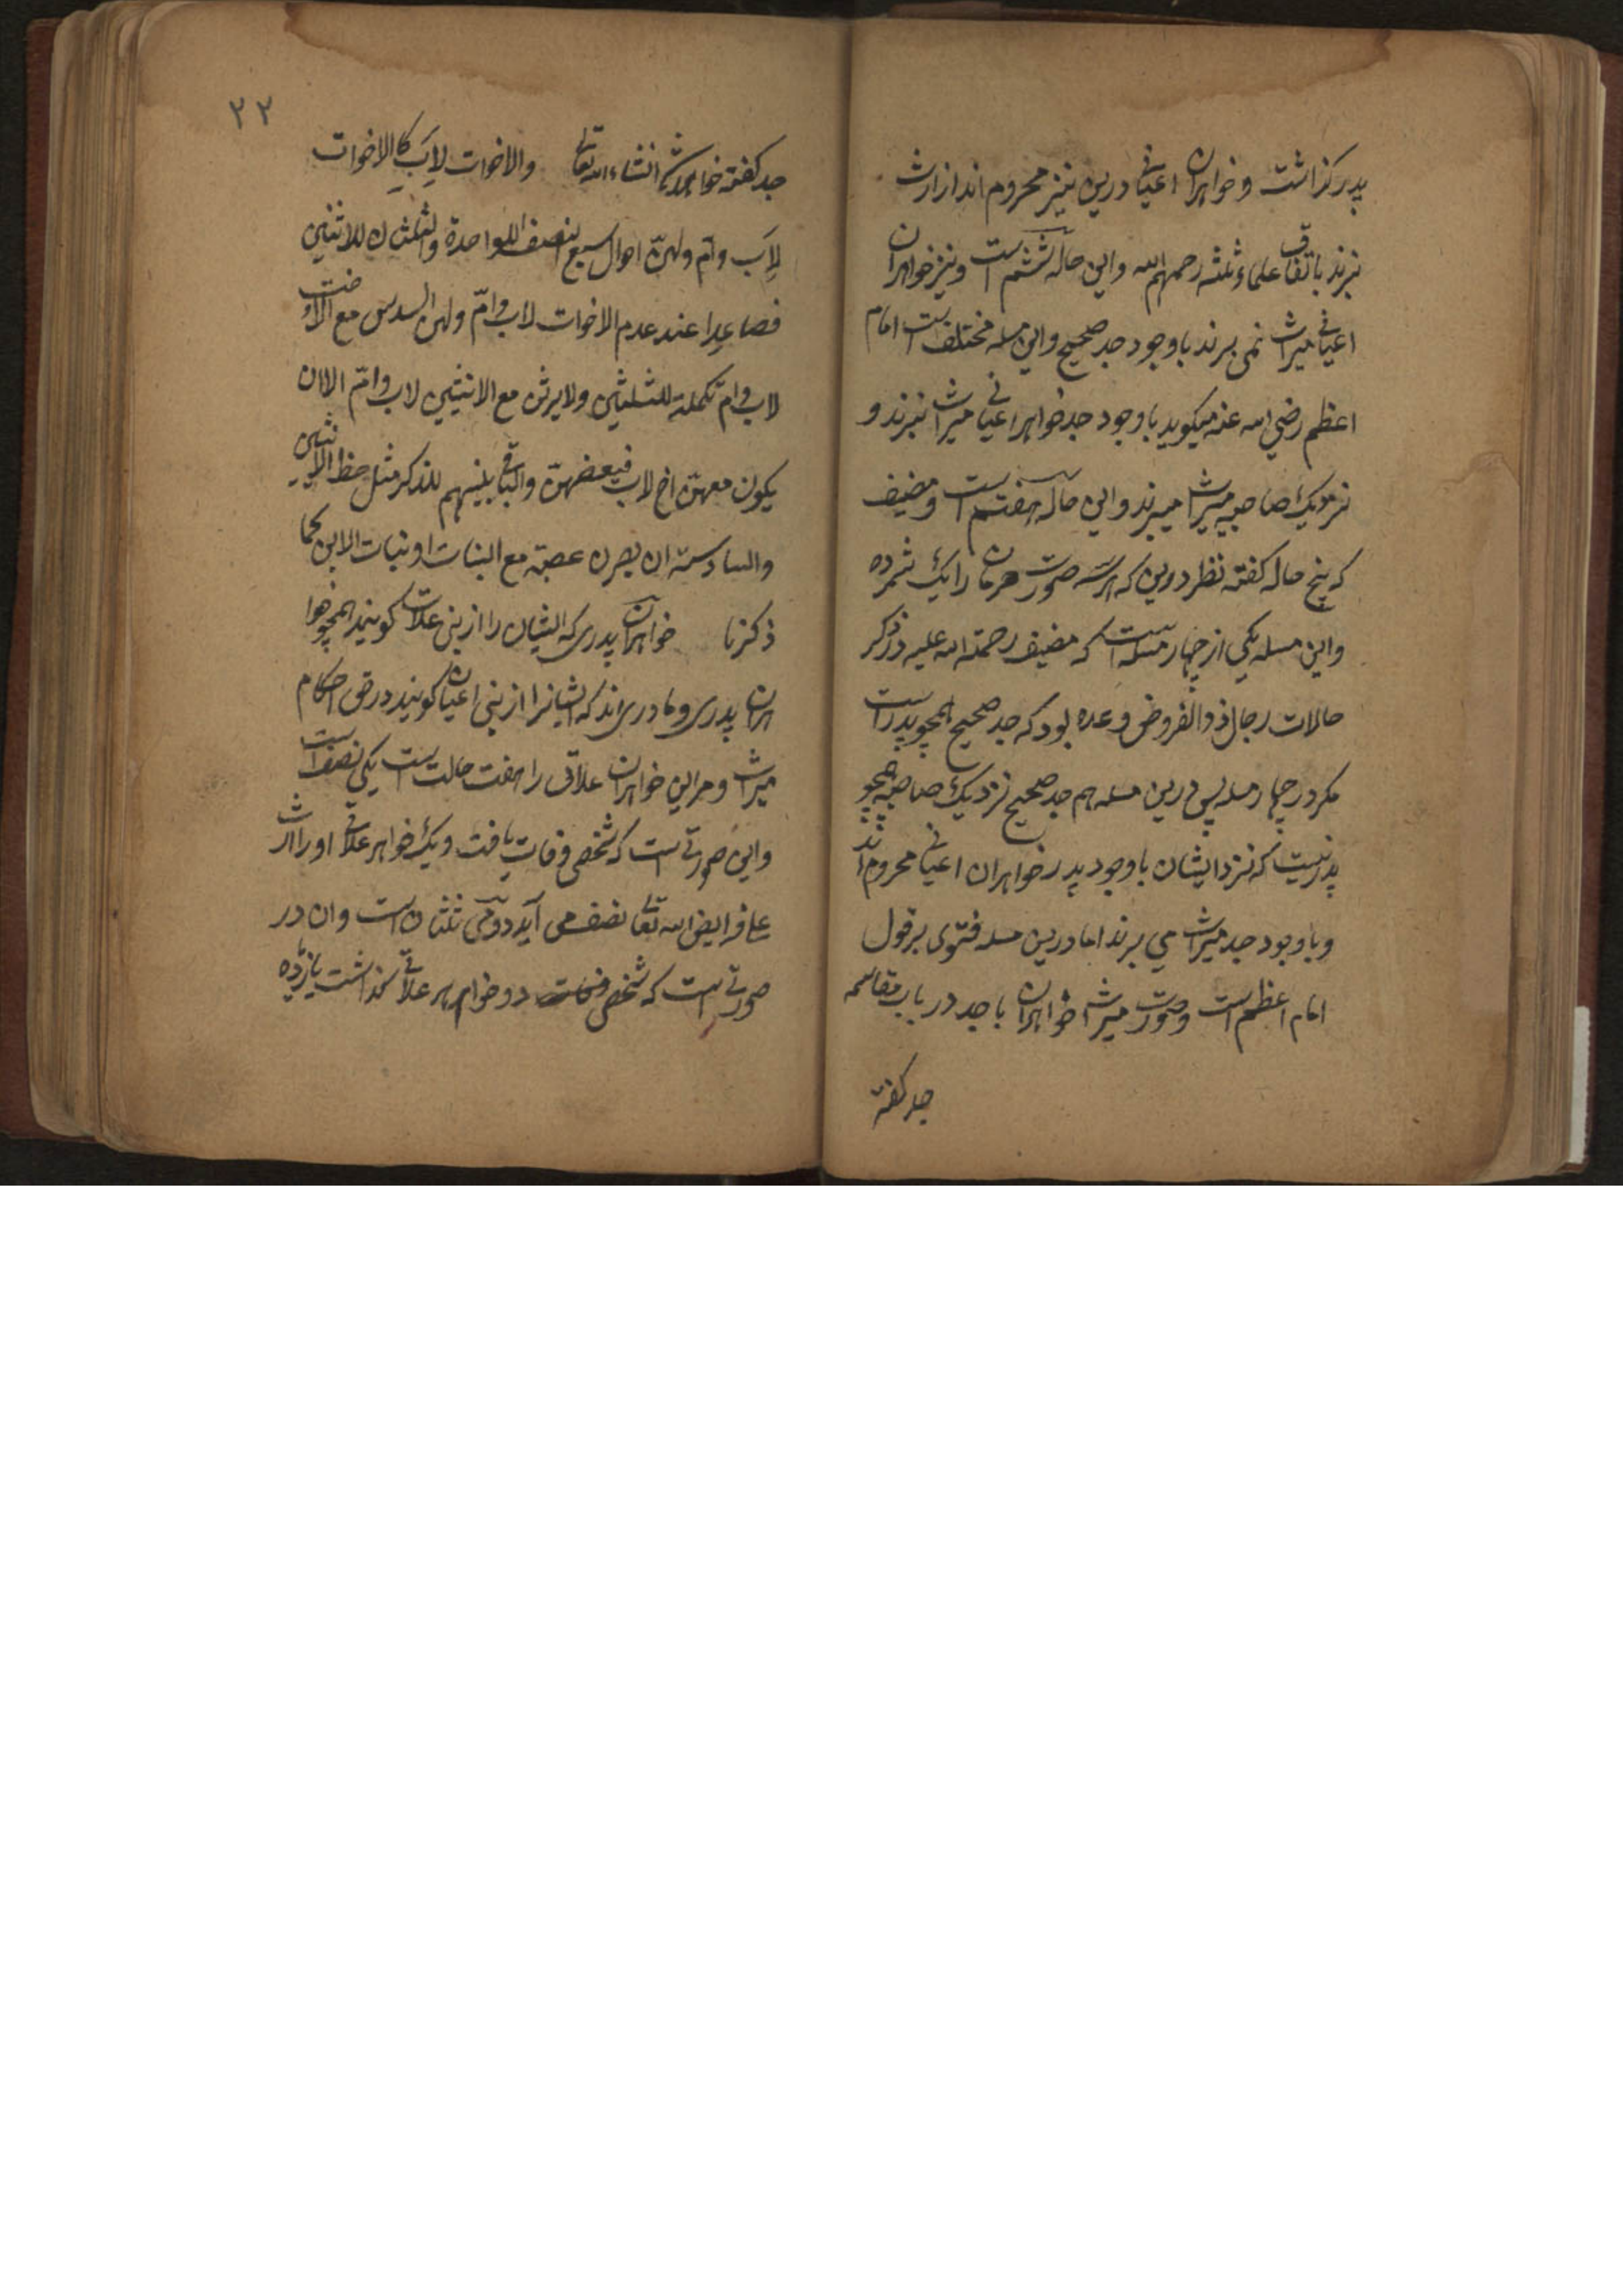 پدر گذاشت و خواهران اعیانی درین نیز محروم اند از ارث
نبرند باتفاق علماء ثلثه رحمهم الله واین حاله ششم است و نیز خواهران
اعیانی میراث نمی برند باوجود جد صحیح واین مسله مختلف است امام
اعظم رضی الله عنه میکوید باوجود جد خواهر اعیانی میراث نبرند و
نزدیک صاحبیه میراث میبرند واین حاله هفتم است و مصنف
که پنج حاله کفته نظر درین که هر سه صورت حرمان را یک شمرده
واین مسله یکی از چهار مسله است که مصنف رحمة الله علیه در ذکر
حالات رجال ذو الفروض وعده بود که جد صحیح همچو پدر است
مکر در چهار مسله پس درین مسله هم جد صحیح نزدیک صاحبیه همچو
پدر نیست که نزد ایشان باوجود پدر خواهران اعیانی محروم اند
و باوجود جد میراث می برند اما درین مسله فتوی بر قول
امام اعظم است وصورت میراث خواهران با جد در باب مقاسمه
جد کفته
٢٢
جد کفته خواهد شد انشاء الله تعالی والاخوات لاب کالاخوات
لاب وام ولهن احوال سبع النصف للواحدة والثلثان للاثنتین
فصاعدا عند عدم الاخوات لاب وام ولهن السدس مع الاخت
لاب وام تکملة للثلثین ولا یرثن مع الاثنتین لاب وام الا ان
یکون معهن اخ لاب فیعصبهن والباقی بینهم للذکر مثل حظ الانثیین
والسادسة ان یصرن عصبة مع البنات او بنات الابن کما
ذکرنا خواهران پدری که ایشان را از بنی علات کویند همچو خوا
هران پدری و مادری اند که ایشانرا از بنی اعیان کویند در حق احکام
میراث ومر این خواهران علاتی را هفت حالت است یکی نصف است
واین صورتی است که شخصی وفات یافت ویک خواهر علاتی او را ارث
علی فرایض الله تعالی نصف می آید دومی ثلثان است وان در
صورتی است که شخصی دو خواهر علاتی گذاشت